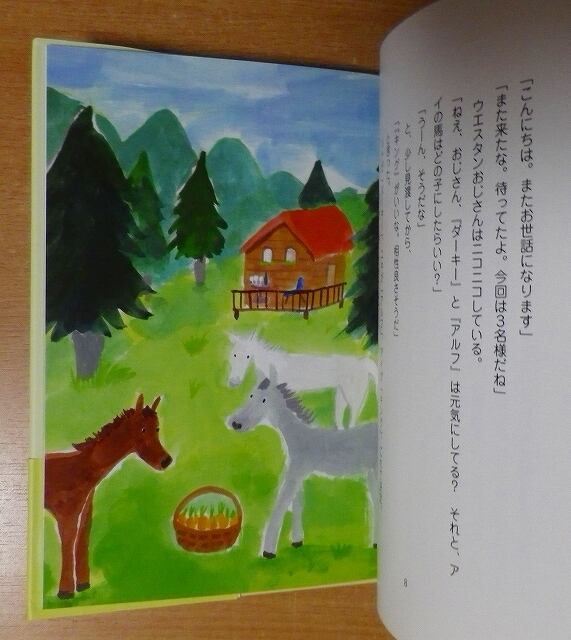 「こんにちは。またお世話になります」
「また来たな。待ってたよ。今回は3名様だね」
ウエスタンおじさんはニコニコしている。
「ねえ、おじさん、『ダーキー』と『アルフ』は元気にしてる？　それと、ア
イの馬はどの子にしたらいい？」
「うーん、そうだな」
と、少し見渡してから、
がいいな。相性良さそうだ」
8